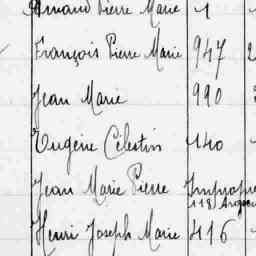 Armand Pierre Marie 1
François Pierre Marie 947
Jean Marie 990
Eugène Célestin 140
Jean Marie Pierre Impropre
118
Henri Joseph Marie 416